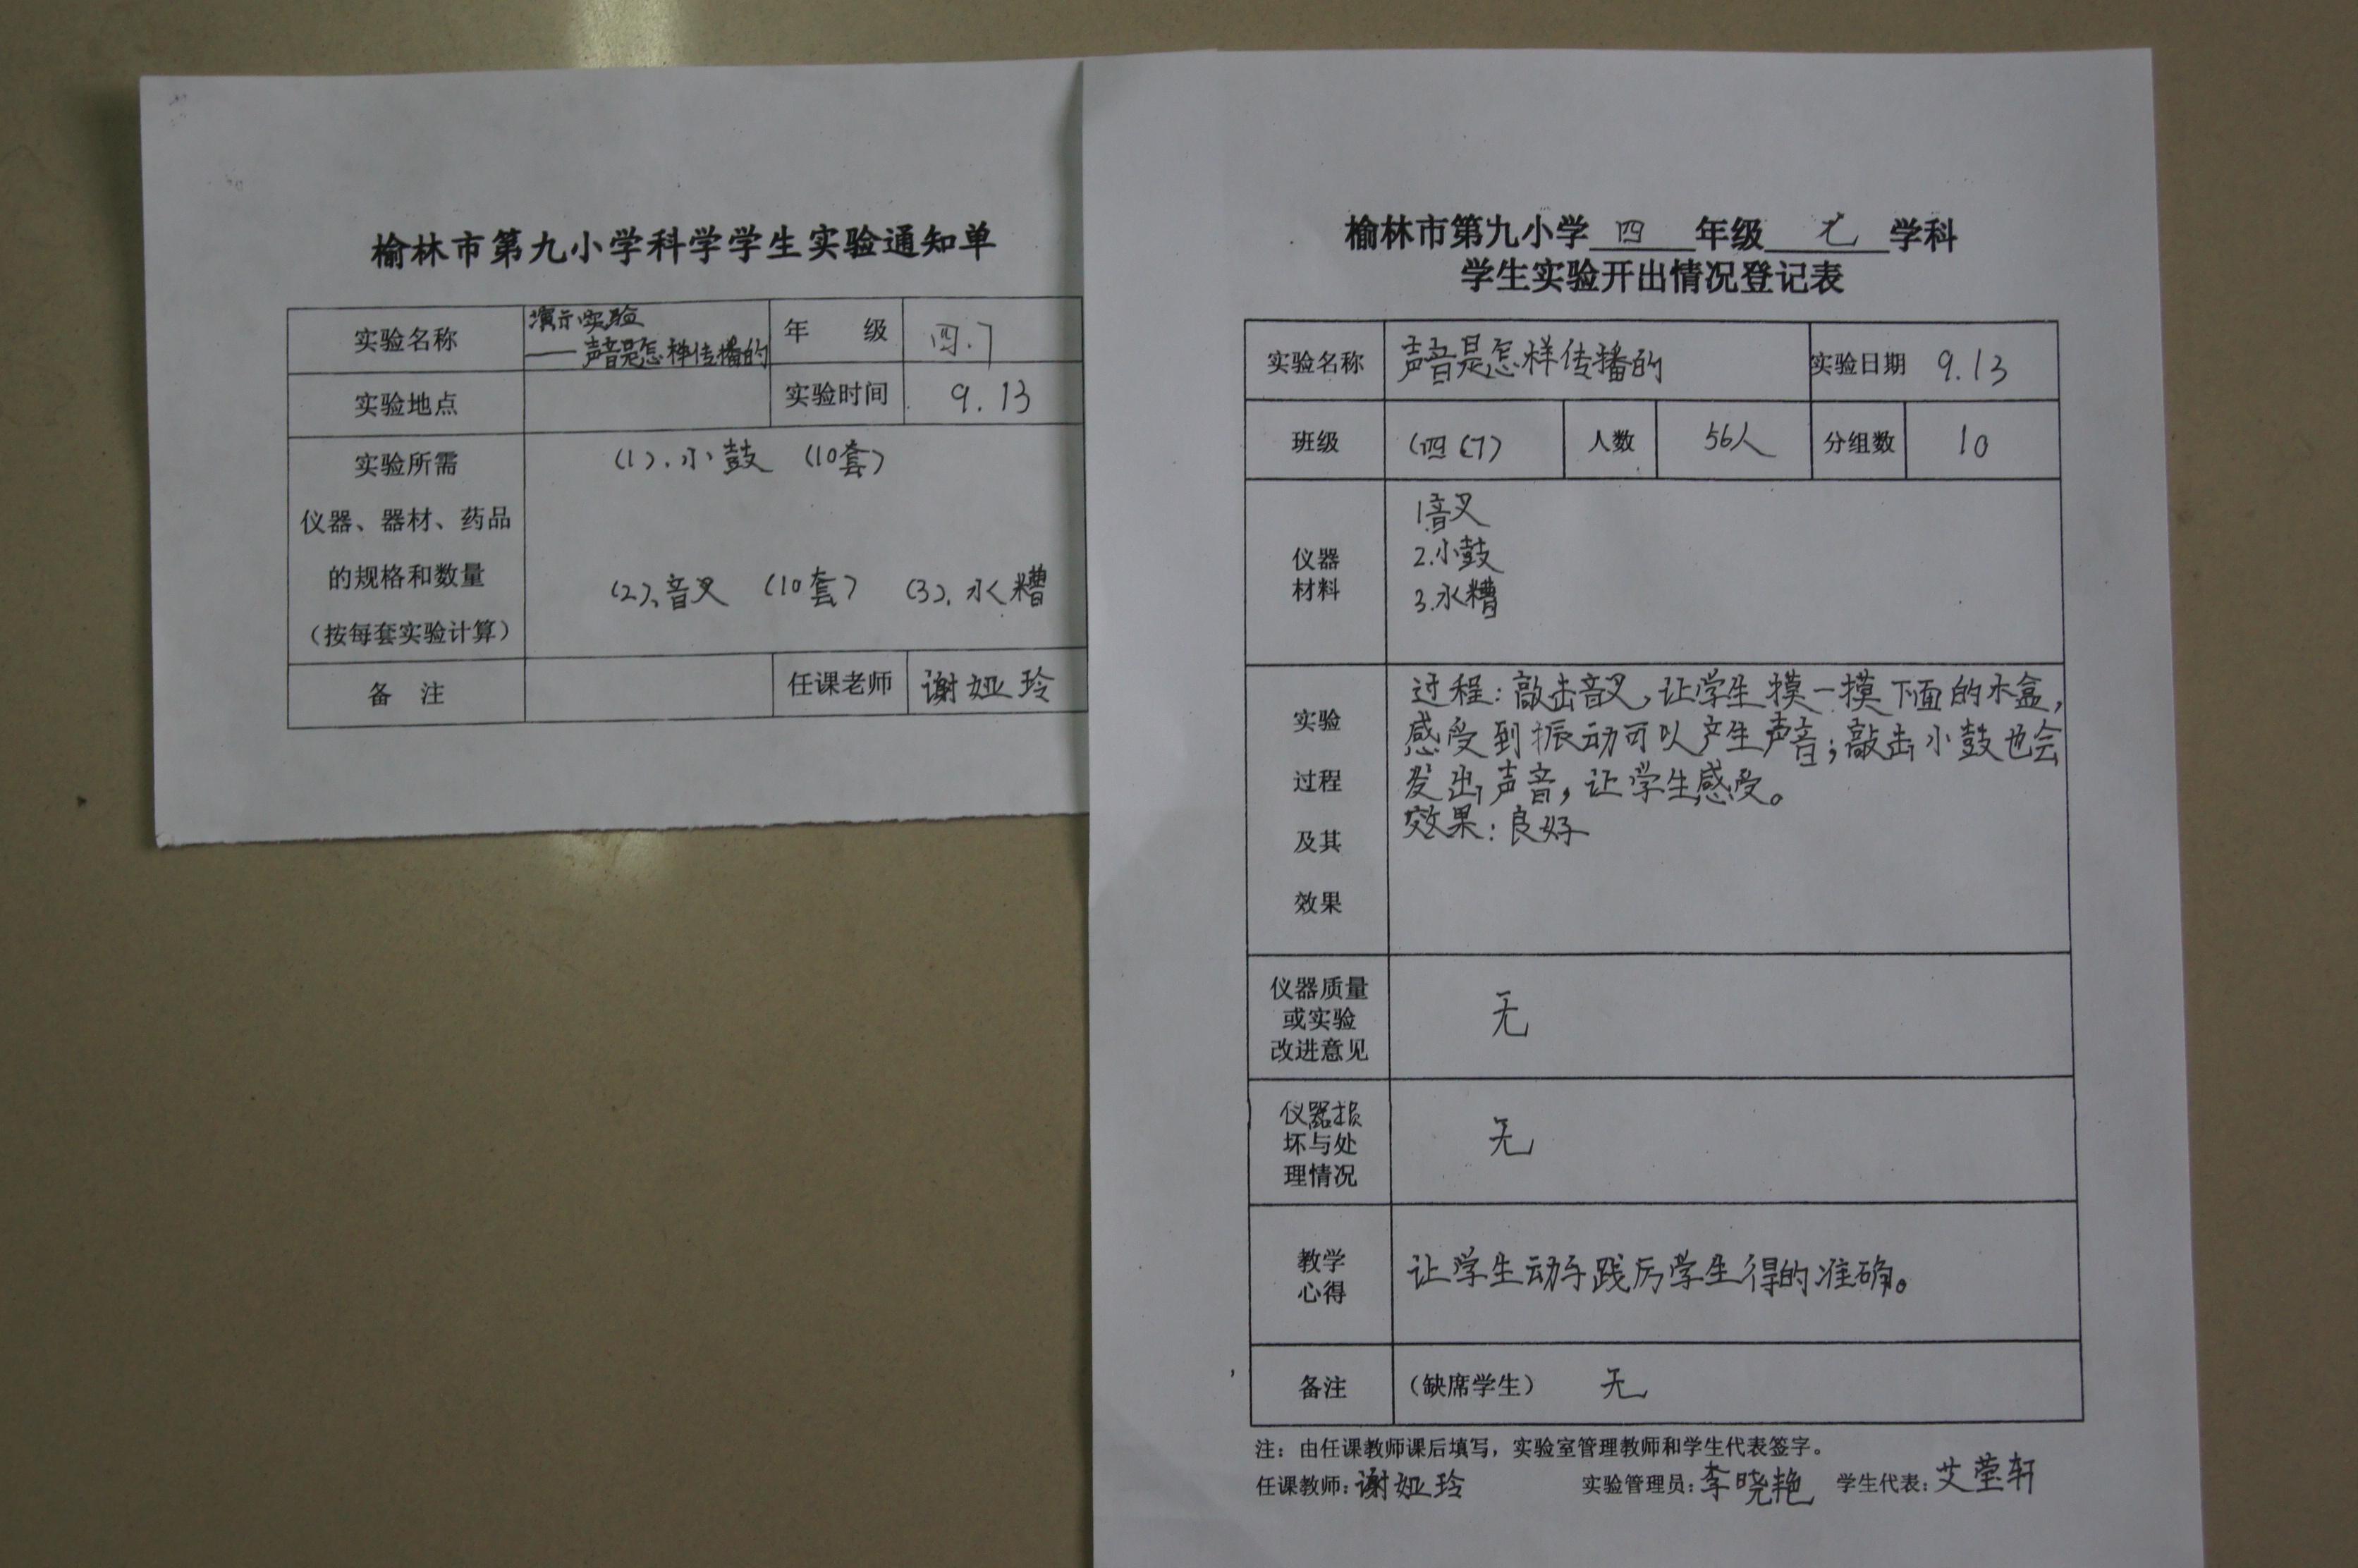 榆林市第九小学科学学生实验通知单
实验名称 演示实验
——声音是怎样传播的
年 级 四.7
实验地点
实验时间 9.13
实验所需
仪器、器材、药品
的规格和数量
(按每套实验计算)
(1).小鼓 (10套)
(2).音叉 (10套) (3).水糟
备 注
任课老师 谢娅玲
榆林市第九小学 四 年级 学科
学生实验开出情况登记表
实验名称 声音是怎样传播的 实验日期 9.13
班级 (四(7) 人数 56人 分组数 10
仪器
材料
1音叉
2.小鼓
3.水糟
实验
过程
及其
效果
过程:敲击音叉,让学生摸一摸下面的木盒,
感受到振动可以产生声音;敲击小鼓也会
发出声音,让学生感受。
效果:良好
仪器质量
或实验
改进意见
无
仪器损
坏与处
理情况
无
教学
心得
让学生动手践后学生得的准确。
备注 (缺席学生) 无
注:由任课教师课后填写,实验室管理教师和学生代表签字。
任课教师:谢娅玲 实验管理员:李晓艳 学生代表:艾莹轩